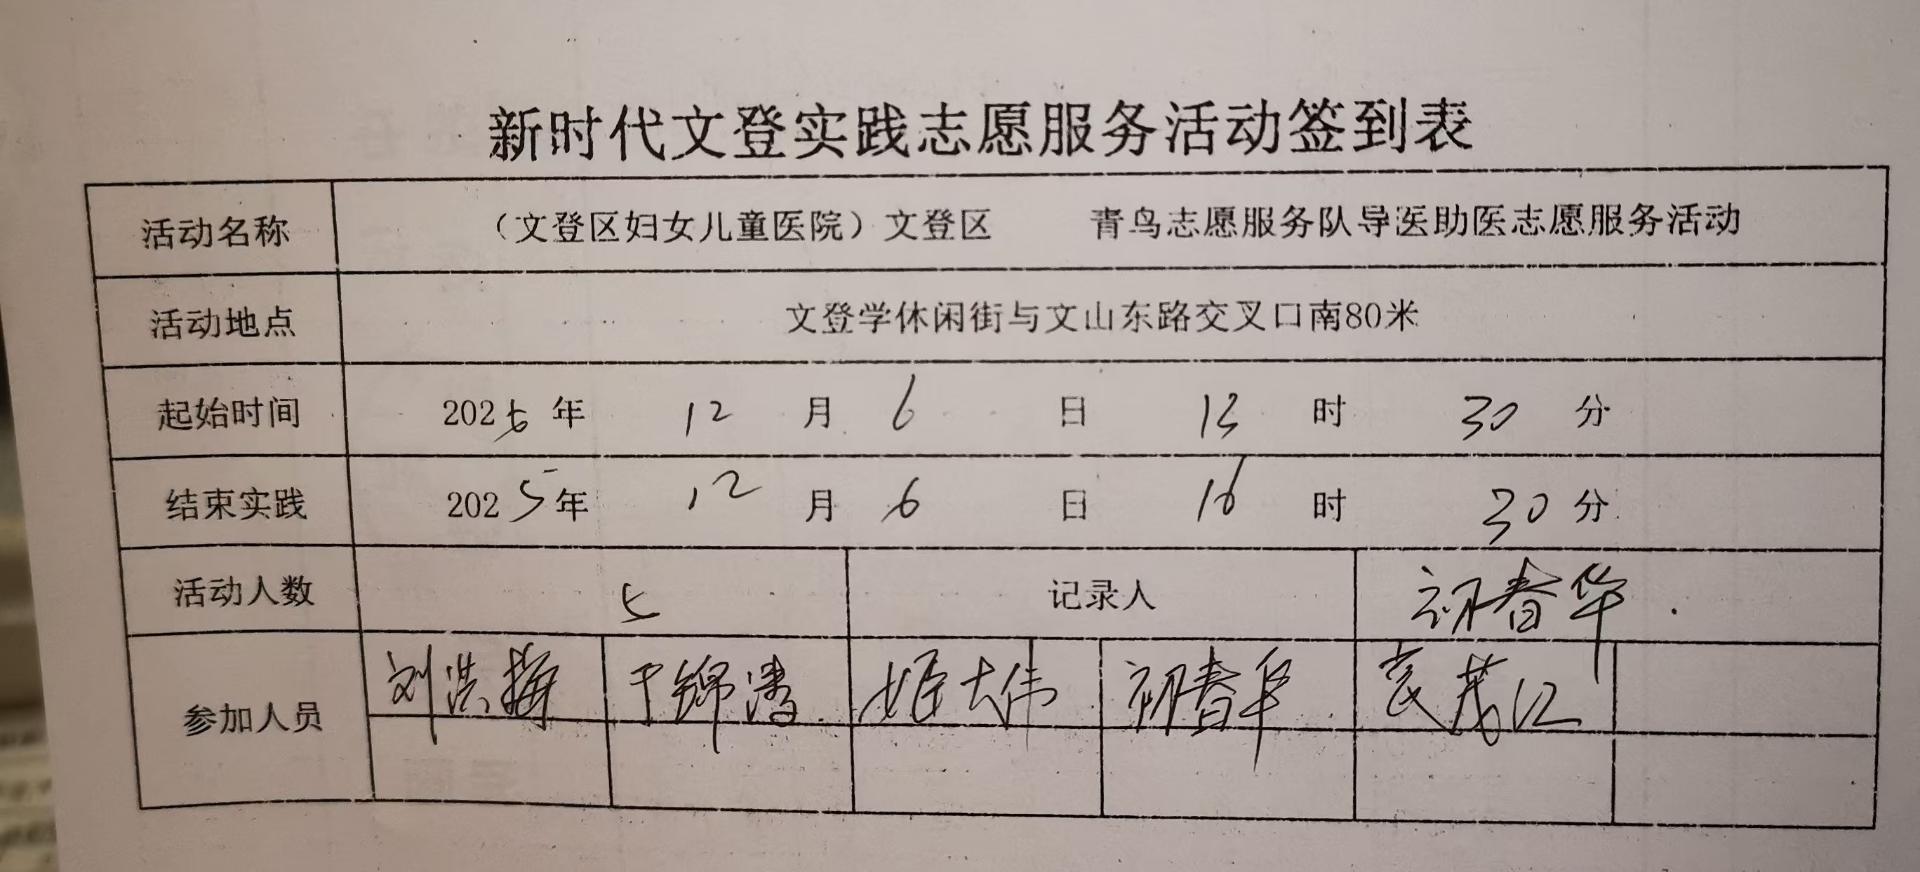 新时代文登实践志愿服务活动签到表
活动名称 （文登区妇女儿童医院）文登区 青鸟志愿服务队导医助医志愿服务活动
活动地点 文登学休闲街与文山东路交叉口南80米
起始时间 2025年 12 月 6 日 13 时 30 分
结束实践 2025年 12 月 6 日 16 时 30 分
活动人数 5 记录人 初春华
参加人员 刘洪梅 于锦涛 姬大伟 初春华 袁茂江